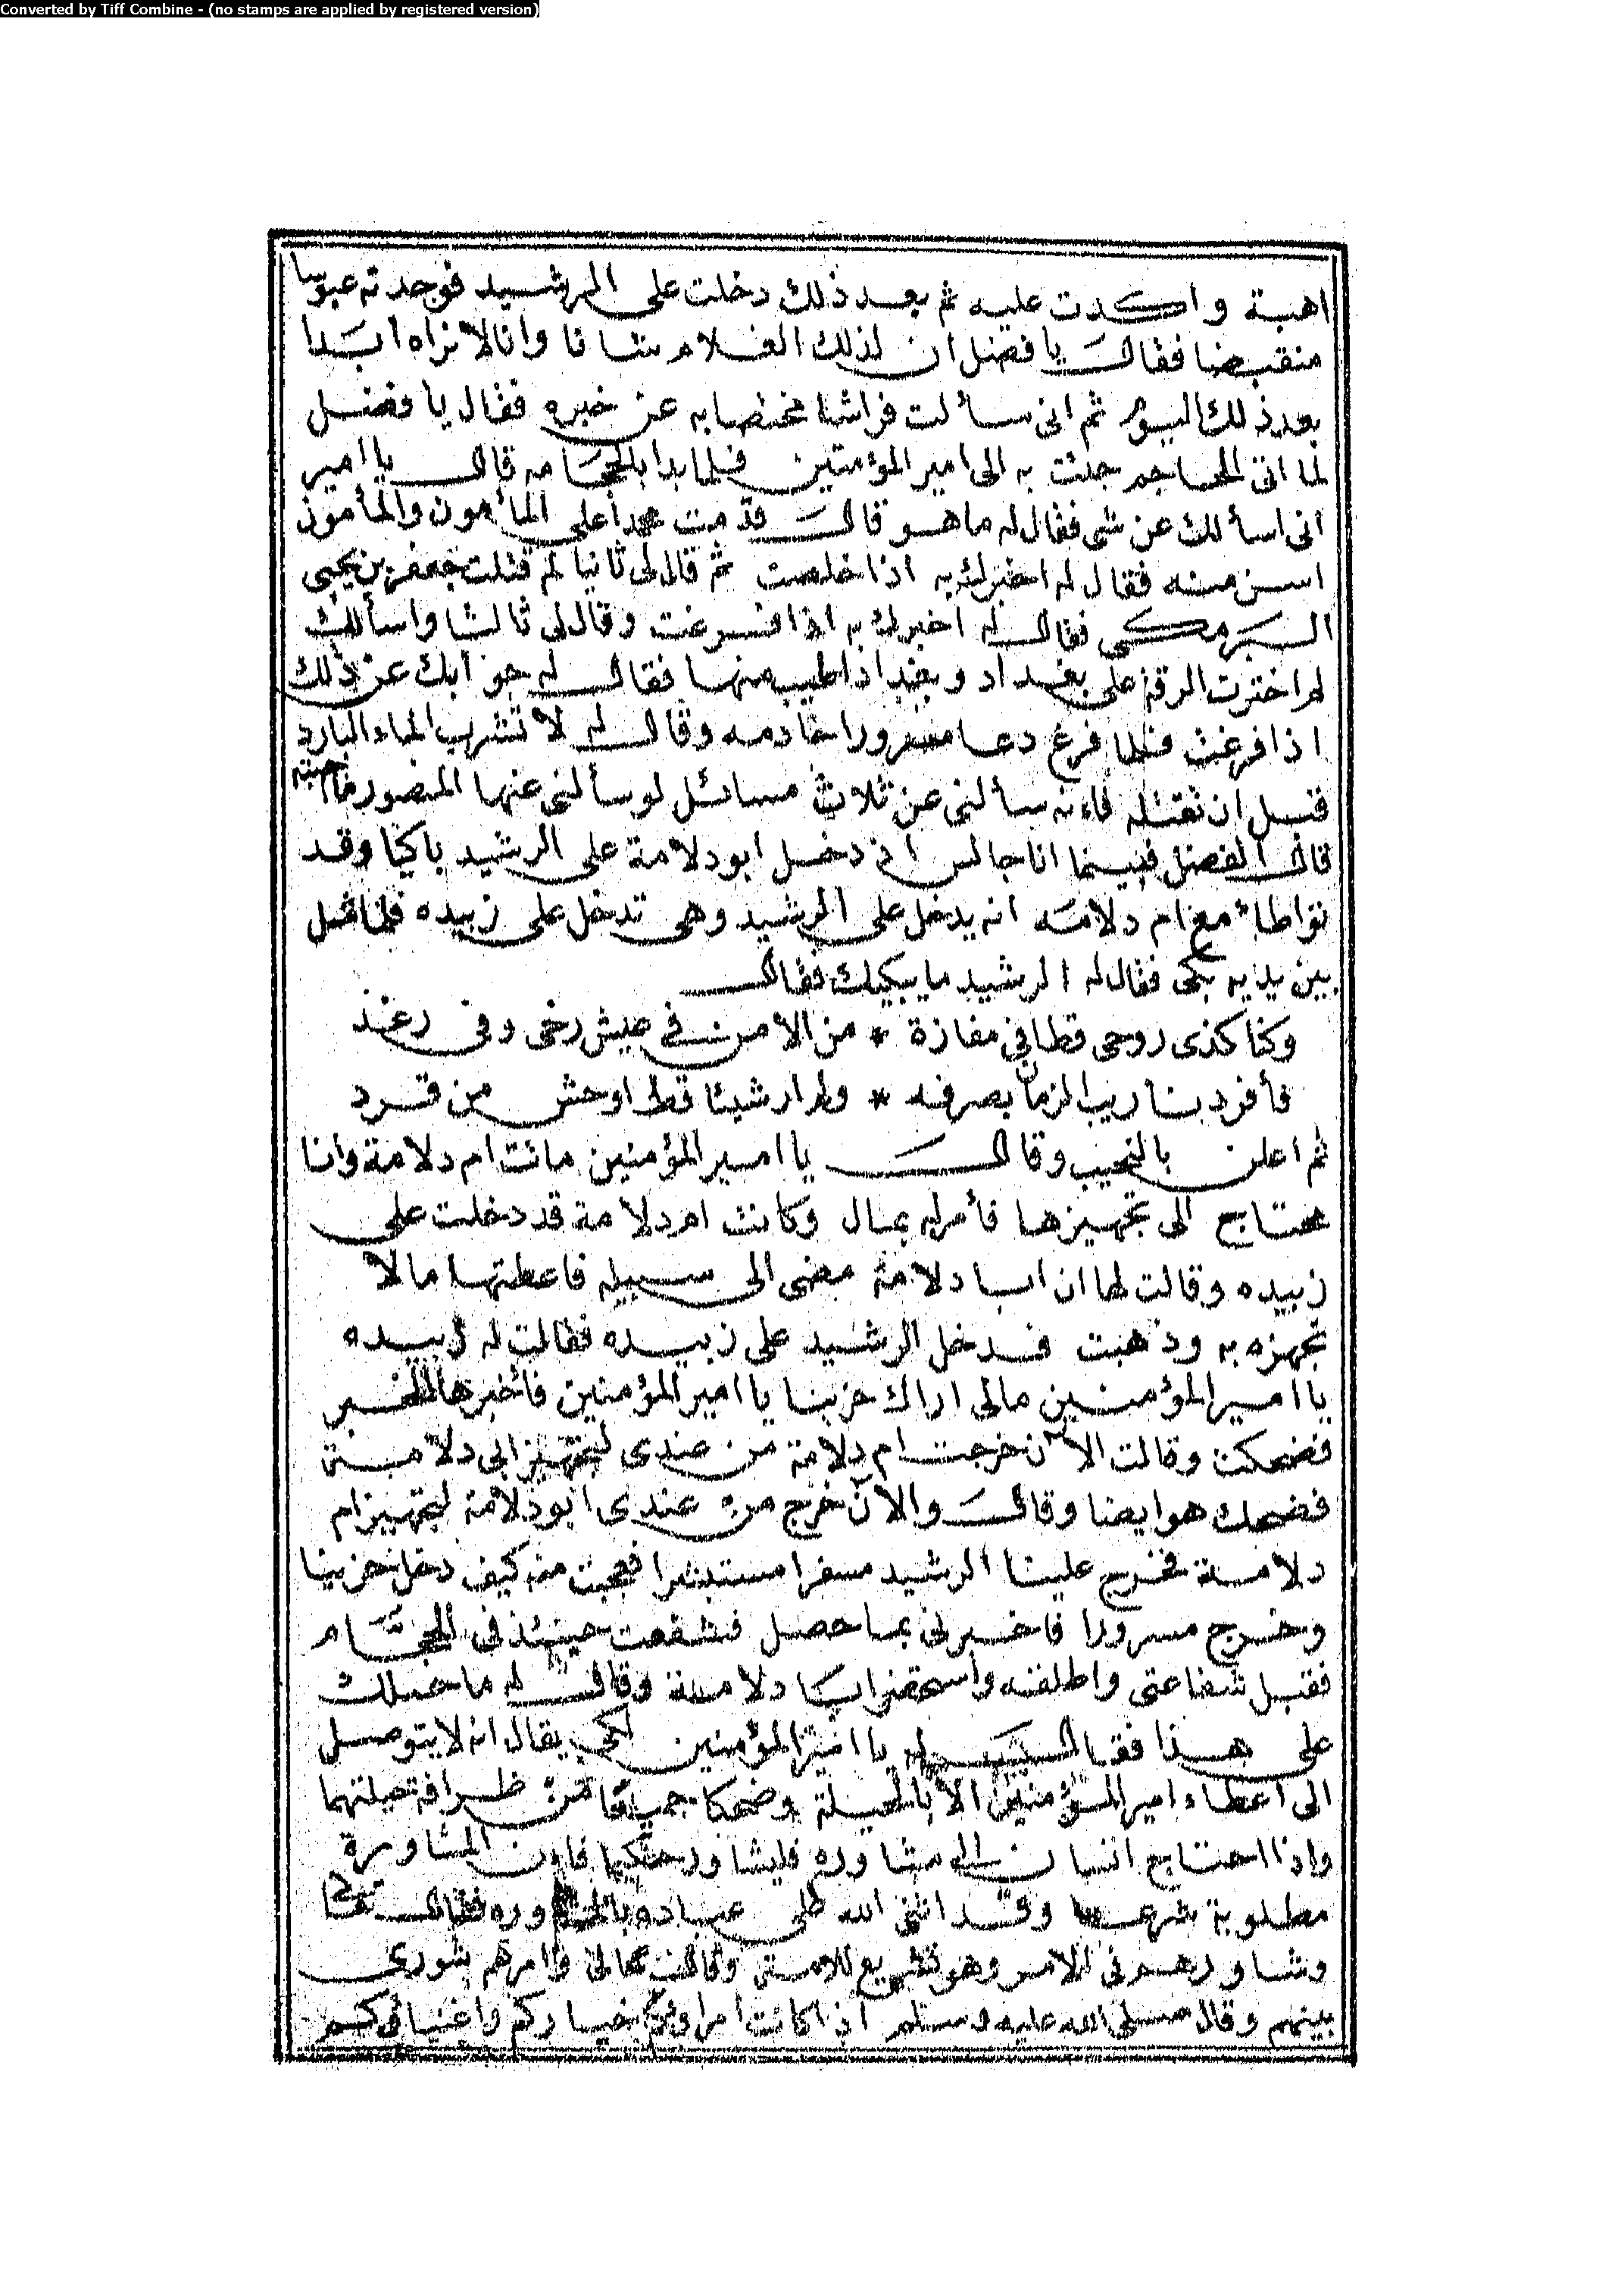 Converted by Tiff Combine - (no stamps are applied by registered version)
اهبة واكدت عليه ثم بعد ذلك دخلت على الرشيد فوجدته عبوسا
منقبضا فقال يا فضل ان لذلك الغلام شانا وانا لا نراه ابدا
بعد ذلك اليوم ثم انى سألت فراشا مختصا به عن خبره فقال يا فضل
لما اتى الحاجم جئت به الى امير المؤمنين فلما بدا بالحجامه قال يا امير
انى اسألك عن شى فقال له ما هو قال قدمت محمدا على المأمون والمأمون
اسن منه فقال له اخبرك به اذا خلصت ثم قال لى ثانيا لم قتلت جعفر بن يحيى
البرمكى فقال له اخبرك به اذا فرغت وقال لى ثالثا واسألك
لم اخترت الرقة على بغداد وبغداد اطيب منها فقال له جوابك عن ذلك
اذا فرغت فلما فرغ دعا مسرورا خادمه وقال له لا تشرب الماء البارد
قبل ان تقتله فاءنه سألنى عن ثلاث مسائل لو سألنى عنها المنصور ما اجبته
قال الفضل فبينما انا جالس اذ دخل ابو دلامة على الرشيد باكيا وقد
تواطاء مع ام دلامة انه يدخل على الرشيد وهى تدخل على زبيده فلما مثل
بين يديه بكى فقال له الرشيد ما يبكيك فقال
وكنا كذى روحى قطا فى مفازة * من الامن فى عيش رخى وفى رغد
فأفرد بنا ريب الزمان بصرفه * ولم ار شيئا قط اوحش من قرد
ثم اعلن بالنحيب وقال يا امير المؤمنين ماتت ام دلامة وانا
محتاج الى تجهيزها فأمر له بمال وكانت ام دلامة قد دخلت على
زبيده وقالت لها ان ابا دلامة مضى الى سبيله فاعطتها مالا
تجهزه به وذهبت فدخل الرشيد على زبيده فقالت له زبيده
يا امير المؤمنين مالى اراك حزينا يا امير المؤمنين فأخبرها الخبر
فضحكت وقالت الآن خرجت ام دلامة من عندى لتجهيز ابى دلامة
فضحك هو ايضا وقال والآن خرج من عندى ابو دلامة لتجهيز ام
دلامة فخرج علينا الرشيد مسفرا مستبشرا فعجبت منه كيف دخل حزينا
وخرج مسرورا فاخبرنى بما حصل فشفعت حينئذ فى الحجام
فقبل شفاعتى واطلقه واستحضر ابا دلامة وقال له ما حملك
على هذا فقال له يا امير المؤمنين لكى يقال انه لا يتوصل
الى اعطاء امير المؤمنين الا بالحيلة وضحكا جميعا من ظرافة حيلتهما
واذا احتاج انسان الى مشاوره فليشاور حكيما فاءن المشاورة
مطلوبة شرعا وقد اثنى الله على عباده وره فقال تعالى
وشاورهم فى الامر وهو تشريع للامة وقال تعالى وامرهم شورى
بينهم وقال صلى الله عليه وسلم اذا كانت امراوكم خياركم واغنياؤكم